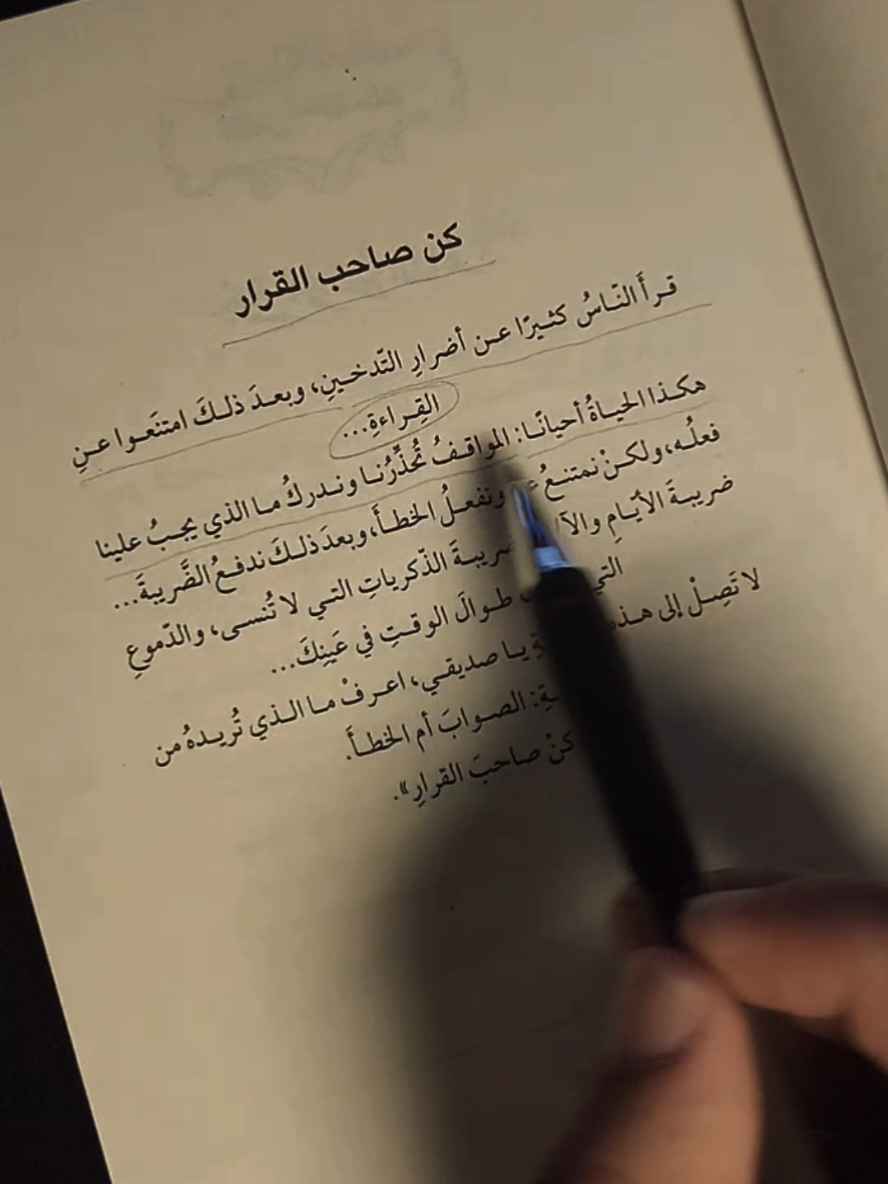 كن صاحب القرار
قرأَ النّاسُ كثيرًا عن أضرارِ التّدخينِ، وبعدَ ذلكَ امتنَعوا عنِ
القِراءةِ...
هكذا الحياةُ أحيانًا: المواقفُ تُحذِّرُنا وندركُ ما الذي يجبُ علينا
فعلُه، ولكنْ نمتنعُ ونفعلُ الخطأَ، وبعدَ ذلكَ ندفعُ الضَّريبةَ...
ضريبةَ الأيّامِ ضريبةَ الذّكرياتِ التي لا تُنسى، والدّموعِ
التي طوالَ الوقتِ في عَينِكَ...
لا تَصِلْ إلى هذه يا صديقي، اعرفْ ما الذي تُريدهُ من
الصوابَ أم الخطأَ.
كنْ صاحبَ القرارِ».